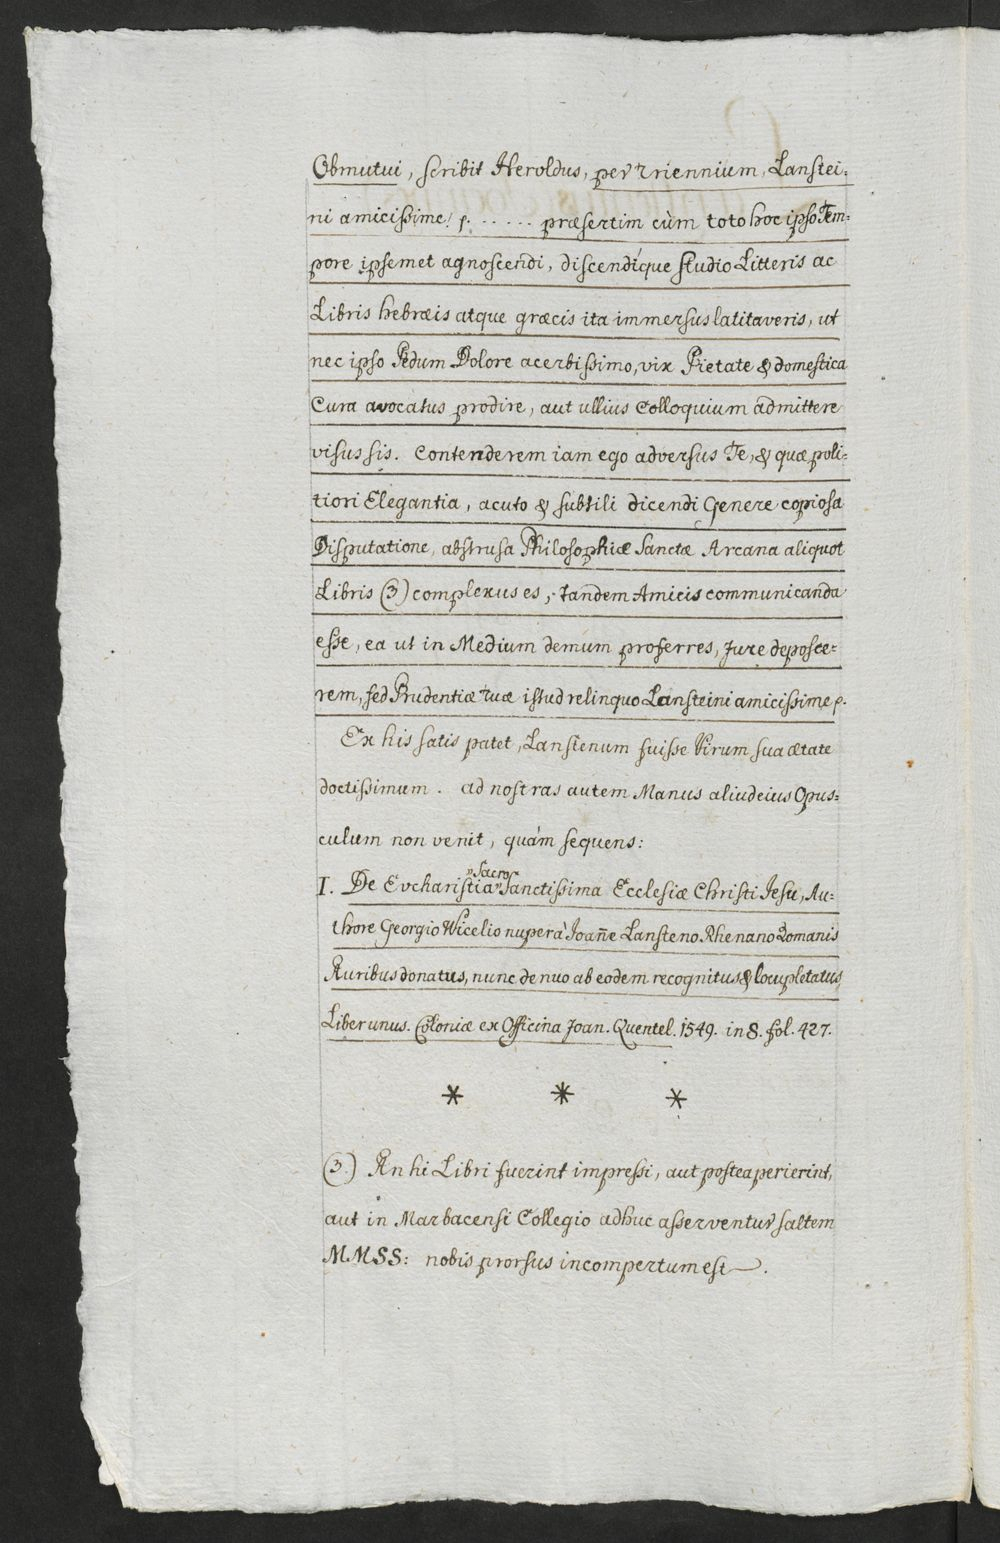 Obmutui, scribit Heroldus, per Triennium, Lanstei:
ni amicissime! p. ...... præsertim cùm toto hoc ipso Tem:
pore ipsemet agnoscendi, discendíque studio Litteris ac
Libris hebræis atque græcis ita immersus latitaveris, ut
nec ipso Pedum Dolore acerbissimo, vix Pietate & domestica
Cura avocatus prodire, aut ullius Colloquium admittere
visus sis. Contenderem iam ego adversus Te, & quæ poli:
tiori Elegantia, acuto & subtili dicendi Genere copiosa
Disputatione, abstrusa Philosophiæ Sanctæ Arcana aliquot
Libris (3) complexus es, tandem Amicis communicanda
esse, ea ut in Medium demum proferres, Jure deposce:
rem, sed Prudentiæ tuæ istud relinquo Lansteini amicissime p.
Ex his satis patet, Lanstenum fuisse Virum sua ætate
doctissimum. ad nostras autem Manus aliud eius Opus:
culum non venit, quàm sequens:
I. De Evcharistia Sacro Sanctissima Ecclesiæ Christi Iesu, Au:
thore Georgio Wicelio nuper à Joañe Lansteno Rhenano Romanis
Auribus donatus, nunc de nuo ab eodem recognitus & locupletatus
Liber unus. Coloniæ ex Officina Joan. Quentel. 1549. in 8. fol. 427.
* * *
(3.) An hi Libri fuerint impressi, aut postea perierint,
aut in Marbacensi Collegio adhuc asserventur saltem
MMSS: nobis prorsus incompertum est.